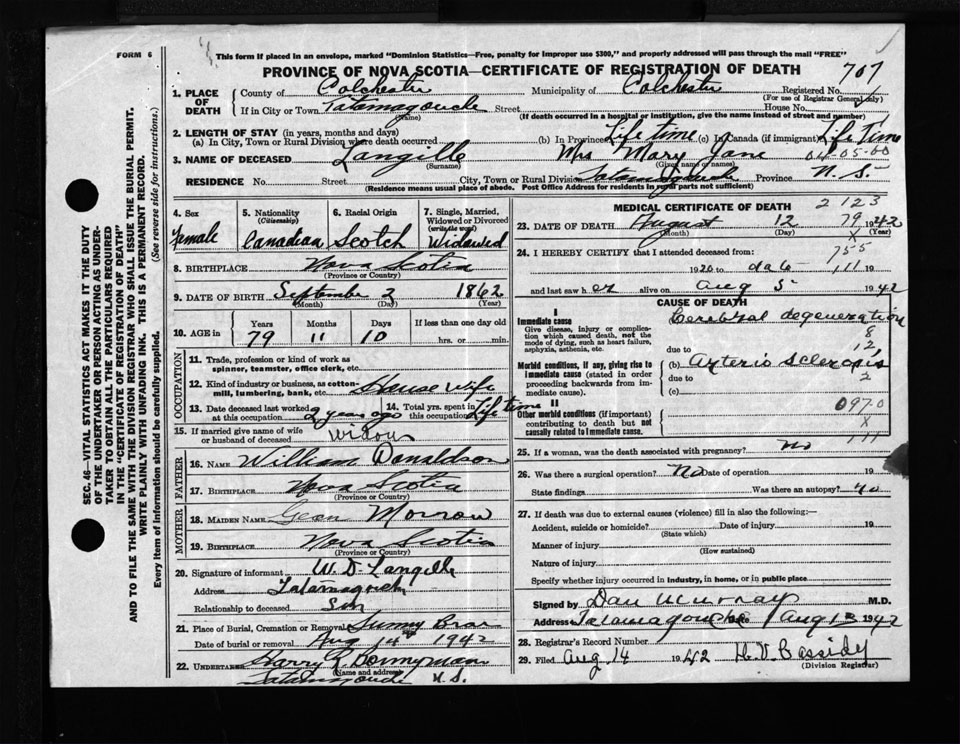 FORM 6
This form if placed in an envelope, marked "Dominion Statistics—Free, penalty for improper use $300," and properly addressed will pass through the mail "FREE"
PROVINCE OF NOVA SCOTIA—CERTIFICATE OF REGISTRATION OF DEATH
707
1. PLACE OF DEATH
County of Colchester Municipality of Colchester Registered No.
(For use of Registrar General only)
If in City or Town Tatamagouche Street House No.
(Name) (If death occurred in a hospital or institution, give the name instead of street and number)
2. LENGTH OF STAY (in years, months and days)
(a) In City, Town or Rural Division where death occurred (b) In Province Life time (c) In Canada (if immigrant) Life Time
3. NAME OF DECEASED Langille Mrs Mary Jane
(Surname) (Given name or names)
04-05-00
RESIDENCE No. Street City, Town or Rural Division Tatamagouche Province N. S.
(Residence means usual place of abode. Post Office Address for residents in rural parts not sufficient)
SEC. 46—VITAL STATISTICS ACT MAKES IT THE DUTY
OF THE UNDERTAKER OR PERSON ACTING AS UNDER-
TAKER TO OBTAIN ALL THE PARTICULARS REQUIRED
IN THE "CERTIFICATE OF REGISTRATION OF DEATH"
AND TO FILE THE SAME WITH THE DIVISION REGISTRAR WHO SHALL ISSUE THE BURIAL PERMIT.
WRITE PLAINLY WITH UNFADING INK. THIS IS A PERMANENT RECORD.
Every item of Information should be carefully supplied. (See reverse side for instructions.)
4. Sex
Female
5. Nationality
(Citizenship)
Canadian
6. Racial Origin
Scotch
7. Single, Married, Widowed or Divorced
(write the word)
Widowed
8. BIRTHPLACE Nova Scotia
(Province or Country)
9. DATE OF BIRTH September 2 1862
(Month) (Day) (Year)
10. AGE in
Years Months Days If less than one day old
79 11 10 hrs. or min.
OCCUPATION
11. Trade, profession or kind of work as
spinner, teamster, office clerk, etc.
12. Kind of industry or business, as cotton-
mill, lumbering, bank, etc. House wife
13. Date deceased last worked at this occupation 2 years ago
14. Total yrs. spent in this occupation Life time
15. If married give name of wife
or husband of deceased widow
FATHER
16. Name William Donaldson
17. Birthplace Nova Scotia
(Province or Country)
MOTHER
18. MAIDEN NAME Gean Morrow
19. BIRTHPLACE Nova Scotia
(Province or Country)
20. Signature of informant W. D. Langille
Address Tatamagouch
Relationship to deceased Son
21. Place of Burial, Cremation or Removal Sunny Brae
Date of burial or removal Aug 14th 1942
22. UNDERTAKER Harry Bonnyman
(Name and address)
Tatamagouche N.S.
MEDICAL CERTIFICATE OF DEATH
2123
23. DATE OF DEATH August 12 1942
(Month) (Day) (Year)
79
24. I HEREBY CERTIFY that I attended deceased from:
755
1920 to date 19
111
and last saw her alive on Aug 5 1942
CAUSE OF DEATH
I
Immediate cause
Give disease, injury or complication which caused death, not the mode of dying, such as heart failure, asphyxia, asthenia, etc.
Cerebral degeneration
8
due to 12
Morbid conditions, if any, giving rise to immediate cause (stated in order proceeding backwards from immediate cause).
(b) Arterio sclerosis
due to 2
(c)
II
Other morbid conditions (if important) contributing to death but not causally related to immediate cause.
0970
X
111
25. If a woman, was the death associated with pregnancy? no
26. Was there a surgical operation? No Date of operation 19
State findings Was there an autopsy? no
27. If death was due to external causes (violence) fill in also the following:—
Accident, suicide or homicide? Date of injury 19
(State which)
Manner of injury
(How sustained)
Nature of injury
Specify whether injury occurred in industry, in home, or in public place
Signed by Dan Murray M.D.
Address Tatamagouche Aug 13 1942
28. Registrar's Record Number
29. Filed Aug 14 1942 H. V. Cassidy
(Division Registrar)